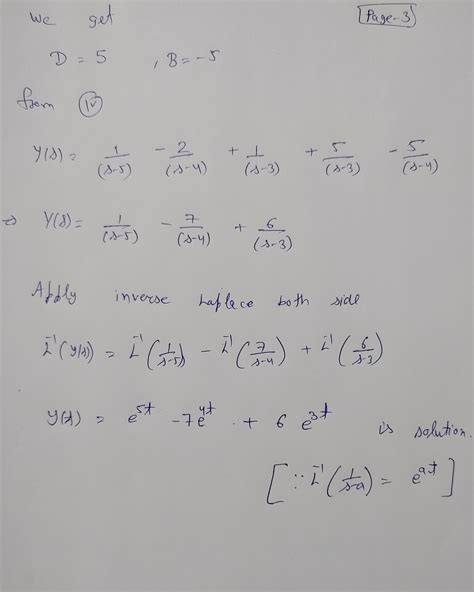 We get Page-3
D = 5 , B = -5
from (iv)
Y(s) = 1/(s-5) - 2/(s-4) + 1/(s-3) + 5/(s-3) - 5/(s-4)
⇒ Y(s) = 1/(s-5) - 7/(s-4) + 6/(s-3)
Apply inverse Laplace both side
L⁻¹(y(s)) = L⁻¹(1/(s-5)) - L⁻¹(7/(s-4)) + L⁻¹(6/(s-3))
y(t) = e^5t - 7e^4t + 6 e^3t is solution.
[∵ L⁻¹(1/(s-a)) = e^at]